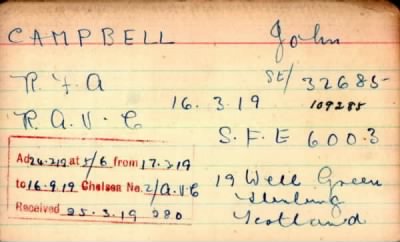 CAMPBELL John
R. F. A SE/ 32685
16. 3. 19 109285
R. A. V. C
S. F. E 600.3
Ad 26.2.19 at 5/6 from 17.2.19
to 16.9.19 Chelsea No. 2/A.V.C
Received 25.3.19 280
19 Well Green
Sterling
Scotland